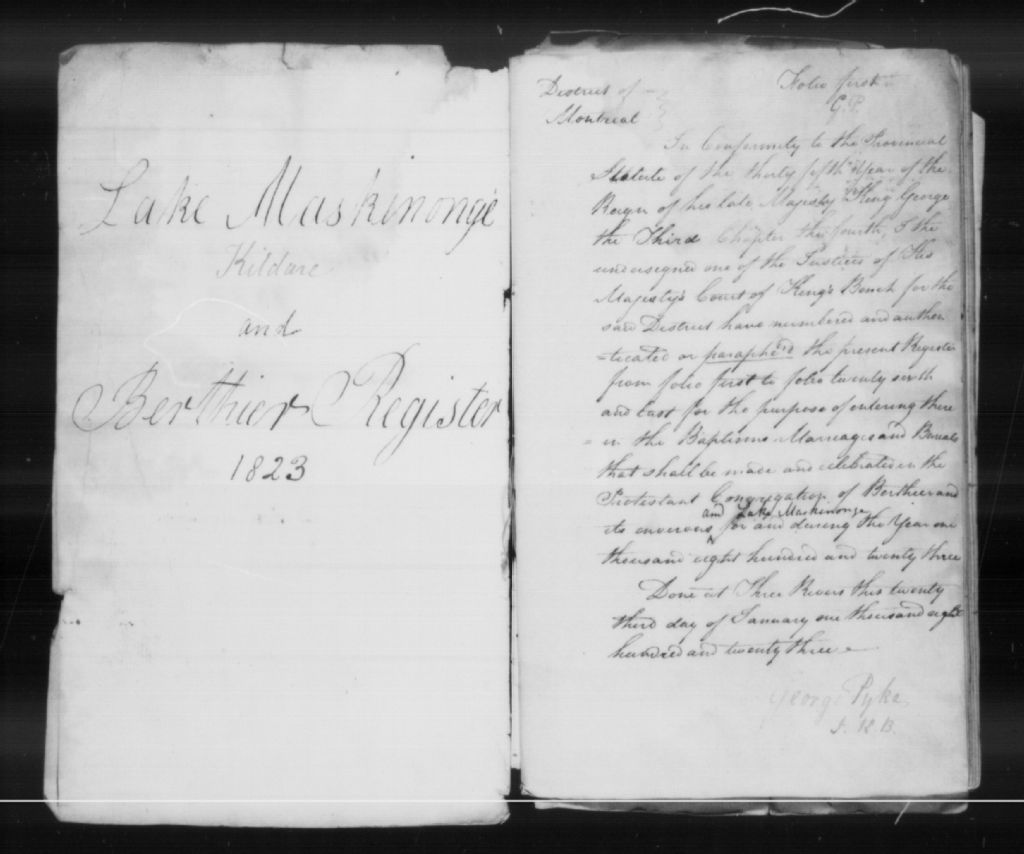 Lake Maskinongé
Kildare
and
Berthier Register
1823
District of
Montreal
Folio first
G.P.
In Conformity to the Provincial
Statute of the thirty fifth Year of the
Reign of his late Majesty King George
the Third Chapter the fourth, I the
undersigned one of the Justices of His
Majesty's Court of King's Bench for the
said District have numbered and authen
=ticated or paraphe'd the present Register
from folio first to folio twenty
and last for the purpose of entering there
= in the Baptisms Marriages and Burials
that shall be made and celebrated in the
Protestant Congregation of Berthier and
and Lake Maskinonge
its environs for and during the Year one
thousand eight hundred and twenty three
Done at Three Rivers this twenty
third day of January one thousand eight
hundred and twenty three
George Pyke
J. K. B.